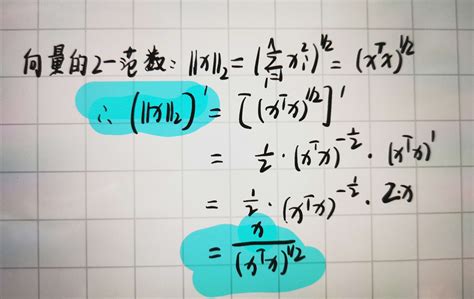 向量的2-范数: ||x||₂ = (∑ᵢ₌₁ⁿ xᵢ²)^{1/2} = (xᵀx)^{1/2}
∴ (||x||₂)' = [(xᵀx)^{1/2}]'
= 1/2 · (xᵀx)^{-1/2} · (xᵀx)'
= 1/2 · (xᵀx)^{-1/2} · 2·x
= x/(xᵀx)^{1/2}